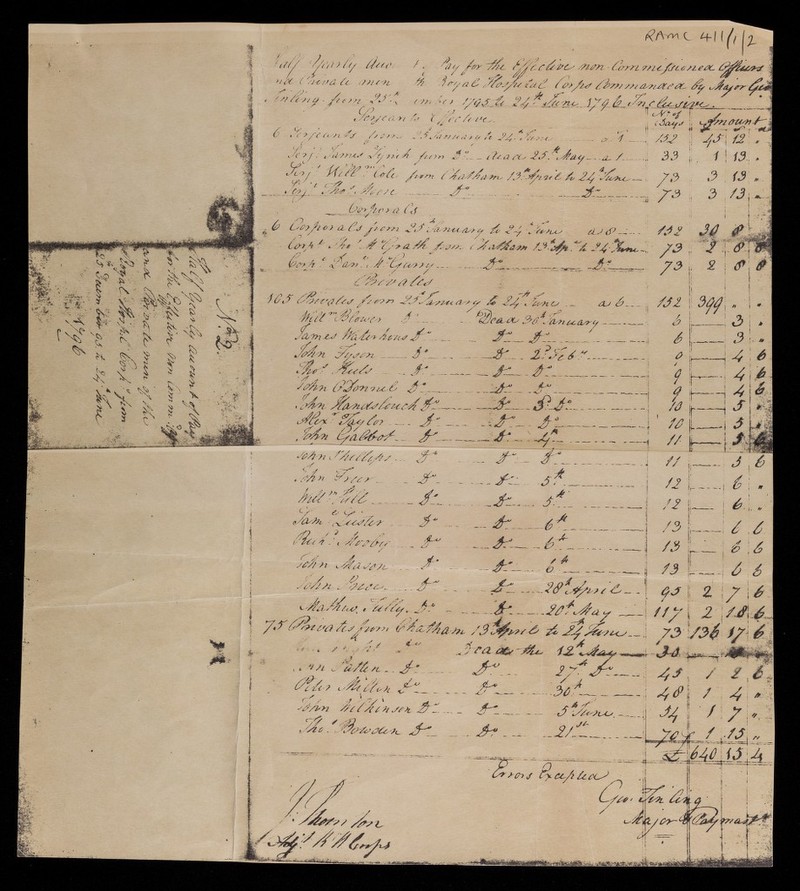 RAMC 411/1/2
Half Yearly Pay for the Effective non Commissioned Officers
and Private men Royal Hospital Corps Commanded by Major Geo
Tinling from 25th 1795 to 24th June 1796 Inclusive
Serjeants Effective
No. of Days Amount
6 Serjeants from 25 January to 24th June 152 45 12 "
Serjt. James Lynch from Do dead 25th May 33 1 13 "
Serjt Willm Cole from Chatham 13th April to 24th June 73 3 13 "
Serjt Thos Do Do 73 3 13 "
Corporals
6 Corporals from 25th January to 24 June 152 30 8
Corpl Jno McGrath from Chatham 13th Ap. to 24 June 73 2 8 8
Corpl Danl McGurry Do Do 73 2 8 8
Privates
105 Privates from 25th January to 24th June a 6 152 399 " "
Willm Blower Do Dead 30th January 6 3 "
James Waterhous Do Do Do 6 3 "
John Tyson Do Do 2d Feby 4 6
Thos Do Do Do 9 4 6
John O Donnel Do Do Do 9 4 6
John Handslouch Do Do 3d Do 10 5 "
Alexr Taylor Do Do Do 10 5 "
John Gabbot Do Do 4th 11 5 6
John Phellips Do Do Do 11 5 6
John Freer Do Do 5th 12 6 "
Willm Do Do 5th 12 6 "
Saml Lister Do Do 6th 13 6 6
Richd Mosby Do Do 6th 13 6 6
John Mason Do Do 6th 13 6 6
John Do Do 28th April 95 2 7 6
Mathw. Tully Do Do 20th May 117 2 18 6
75 Privates from Chatham 13th April to 24th June 73 136 17 6
Do Dead the 12th May 30
Patten Do Do 27th Do 45 1 2 6
Peter Do Do 30th 48 1 4 "
John Wilkinson Do Do 5th June 54 1 7 "
Thos Bowden Do Do 21st 70 1 15 "
£ 640 15 4
Errors Excepted
Geo: Tinling
Major & Paymastr
J. Thornton
Adjt R H Corps
No. 2.
Half Yearly amount of Pay
for the Effective non Comm Off
and Private men of the
Royal Hospl Corps from
25 December 95 to 24 June
1796